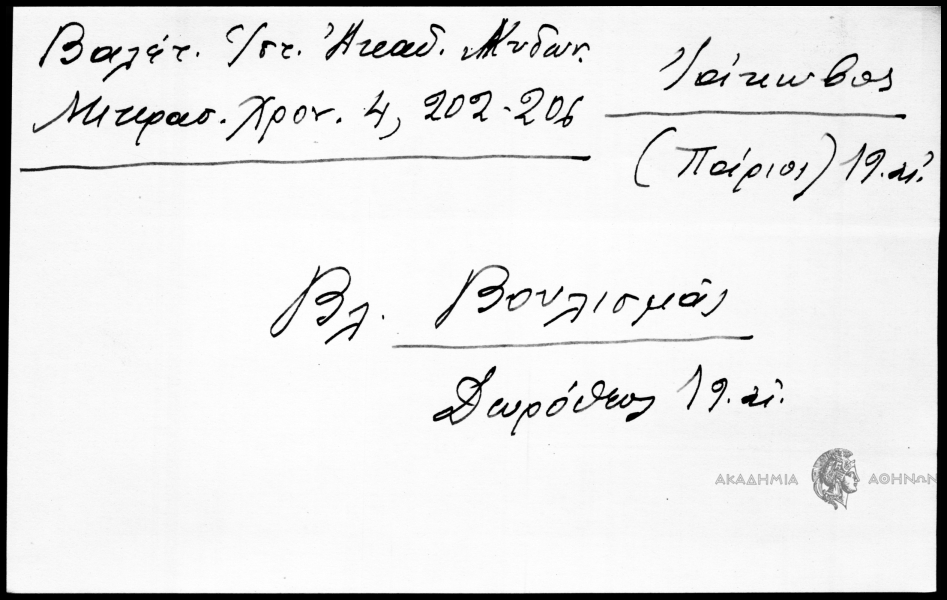 Βαλέτ. Ἱστ. Ἀκαδ. Κυδων.
Μικρασ. Χρον. 4, 202-206
Ἰάκωβος
(Πάριος) 19. αἰ.
Βλ. Βουλισμᾶς
Δωρόθεος 19. αἰ.
ΑΚΑΔΗΜΙΑ ΑΘΗΝΩΝ